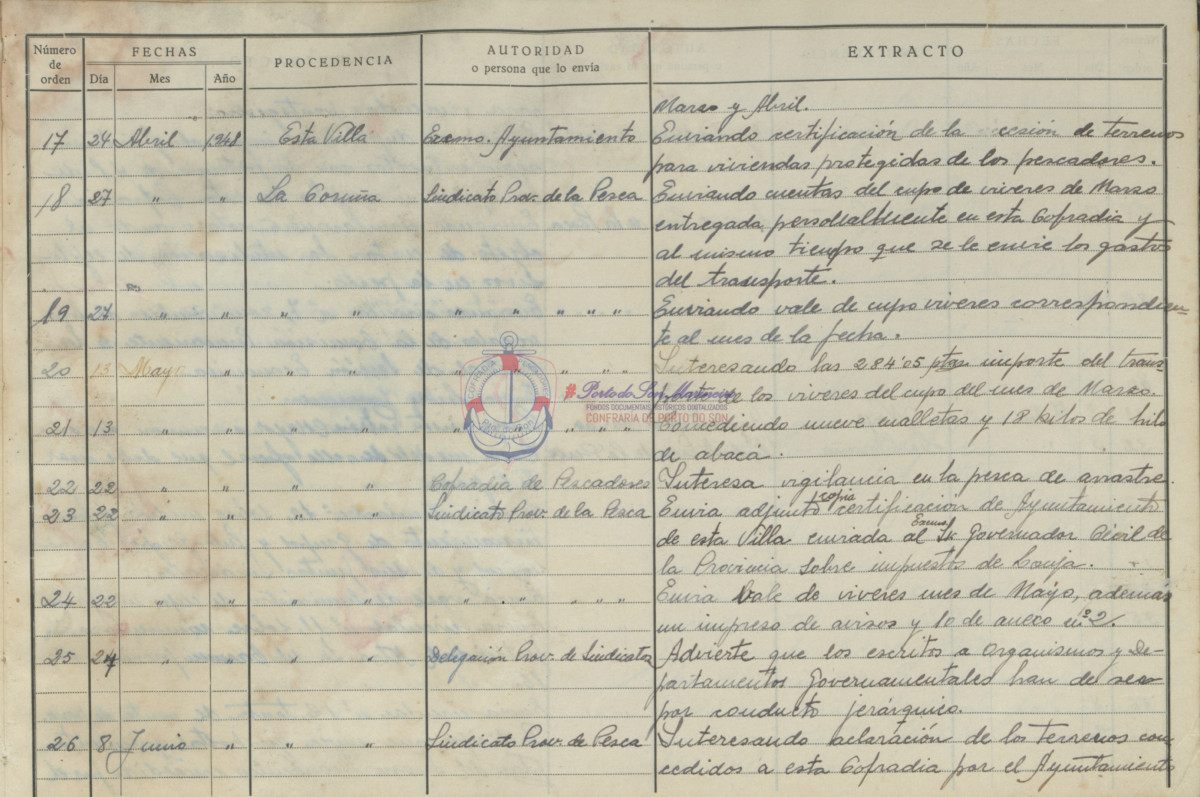 Número de orden FECHAS PROCEDENCIA AUTORIDAD o persona que lo envía EXTRACTO
Día Mes Año
Marzo y Abril.
17 24 Abril 1948 Esta Villa Excmo. Ayuntamiento Enviando certificación de la cesión de terrenos
para viviendas protegidas de los pescadores.
18 27 " " La Coruña Sindicato Prov. de la Pesca Enviando cuentas del cupo de viveres de Marzo
entregada personalmente en esta Cofradia y
al mismo tiempo que se le envie los gastos
del transporte.
19 27 " " " " " " " " " Enviando vale de cupo viveres correspondien-
te al mes de la fecha.
20 13 Mayo " " " " " " " " Interesando las 284'05 ptas importe del trans
porte de los viveres del cupo del mes de Marzo.
21 13 " " " " " " " " Concediendo nueve malletas y 18 kilos de hilo
de abacá.
22 22 " " " " Cofradia de Pescadores Interesa vigilancia en la pesca de arrastre.
23 22 " " " " Sindicato Prov. de la Pesca Envia adjunto copia certificación de Ayuntamiento
de esta Villa enviada al Excmo Sr. Governador Civil de
la Provincia sobre impuestos de Lonja.
24 22 " " " " " " " " Envia Vale de viveres mes de Mayo, además
un impreso de avisos y 10 de anexo nº 2.
25 24 " " " " Delegación Prov. de Sindicatos Advierte que los escritos a Organismos y De-
partamentos Governamentales han de ser
por conducto jerárquico.
26 8 Junio " " " Sindicato Prov. de Pesca Interesando aclaración de los terrenos con-
cedidos a esta Cofradia por el Ayuntamiento
COFRADIA
#PortodoSonMariñeiro
FONDOS DOCUMENTAIS HISTÓRICOS DIGITALIZADOS
CONFRARÍA DE PORTO DO SON